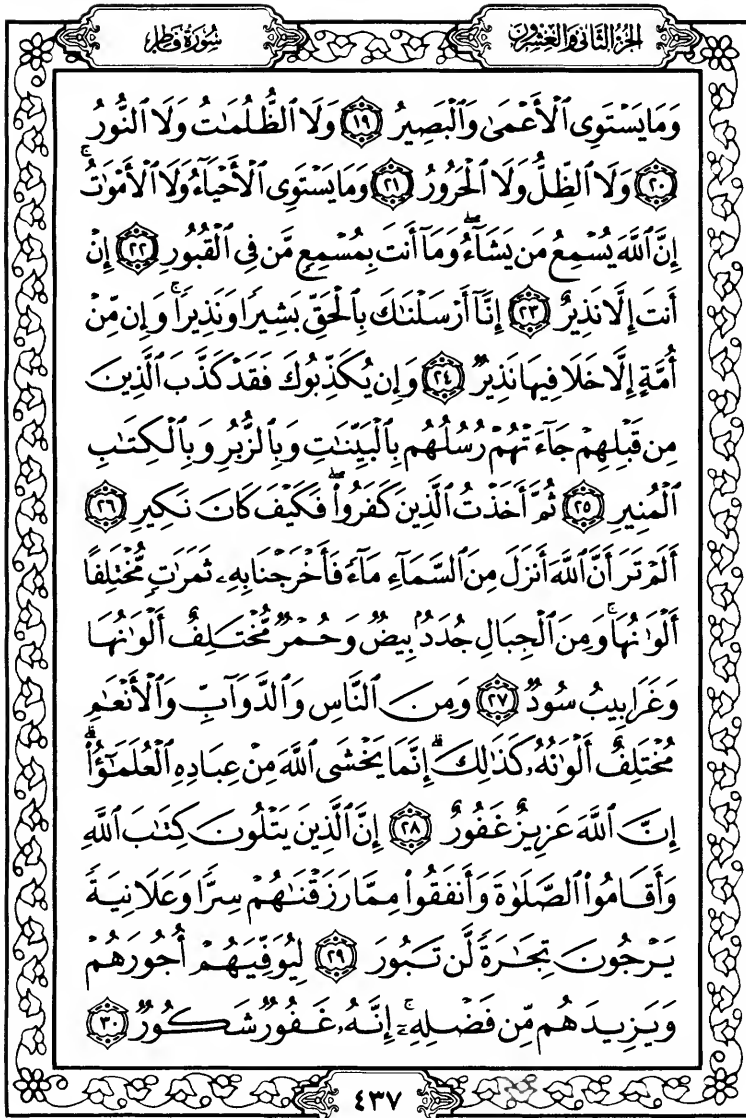 الجزء الثاني والعشرون
سورة فاطر
وَمَا يَسْتَوِى ٱلْأَعْمَىٰ وَٱلْبَصِيرُ ١٩ وَلَا ٱلظُّلُمَٰتُ وَلَا ٱلنُّورُ
٢٠ وَلَا ٱلظِّلُّ وَلَا ٱلْحَرُورُ ٢١ وَمَا يَسْتَوِى ٱلْأَحْيَآءُ وَلَا ٱلْأَمْوَٰتُۚ
إِنَّ ٱللَّهَ يُسْمِعُ مَن يَشَآءُۖ وَمَآ أَنتَ بِمُسْمِعٍ مَّن فِى ٱلْقُبُورِ ٢٢ إِنْ
أَنتَ إِلَّا نَذِيرٌ ٢٣ إِنَّآ أَرْسَلْنَٰكَ بِٱلْحَقِّ بَشِيرًا وَنَذِيرًاۚ وَإِن مِّنْ
أُمَّةٍ إِلَّا خَلَا فِيهَا نَذِيرٌ ٢٤ وَإِن يُكَذِّبُوكَ فَقَدْ كَذَّبَ ٱلَّذِينَ
مِن قَبْلِهِمْ جَآءَتْهُمْ رُسُلُهُم بِٱلْبَيِّنَٰتِ وَبِٱلزُّبُرِ وَبِٱلْكِتَٰبِ
ٱلْمُنِيرِ ٢٥ ثُمَّ أَخَذْتُ ٱلَّذِينَ كَفَرُوا۟ۖ فَكَيْفَ كَانَ نَكِيرِ ٢٦
أَلَمْ تَرَ أَنَّ ٱللَّهَ أَنزَلَ مِنَ ٱلسَّمَآءِ مَآءً فَأَخْرَجْنَا بِهِۦ ثَمَرَٰتٍ مُّخْتَلِفًا
أَلْوَٰنُهَاۚ وَمِنَ ٱلْجِبَالِ جُدَدٌۢ بِيضٌ وَحُمْرٌ مُّخْتَلِفٌ أَلْوَٰنُهَا
وَغَرَابِيبُ سُودٌ ٢٧ وَمِنَ ٱلنَّاسِ وَٱلدَّوَآبِّ وَٱلْأَنْعَٰمِ
مُخْتَلِفٌ أَلْوَٰنُهُۥ كَذَٰلِكَۗ إِنَّمَا يَخْشَى ٱللَّهَ مِنْ عِبَادِهِ ٱلْعُلَمَٰٓؤُا۟ۗ
إِنَّ ٱللَّهَ عَزِيزٌ غَفُورٌ ٢٨ إِنَّ ٱلَّذِينَ يَتْلُونَ كِتَٰبَ ٱللَّهِ
وَأَقَامُوا۟ ٱلصَّلَوٰةَ وَأَنفَقُوا۟ مِمَّا رَزَقْنَٰهُمْ سِرًّا وَعَلَانِيَةً
يَرْجُونَ تِجَٰرَةً لَّن تَبُورَ ٢٩ لِيُوَفِّيَهُمْ أُجُورَهُمْ
وَيَزِيدَهُم مِّن فَضْلِهِۦٓۚ إِنَّهُۥ غَفُورٌ شَكُورٌ ٣٠
٤٣٧